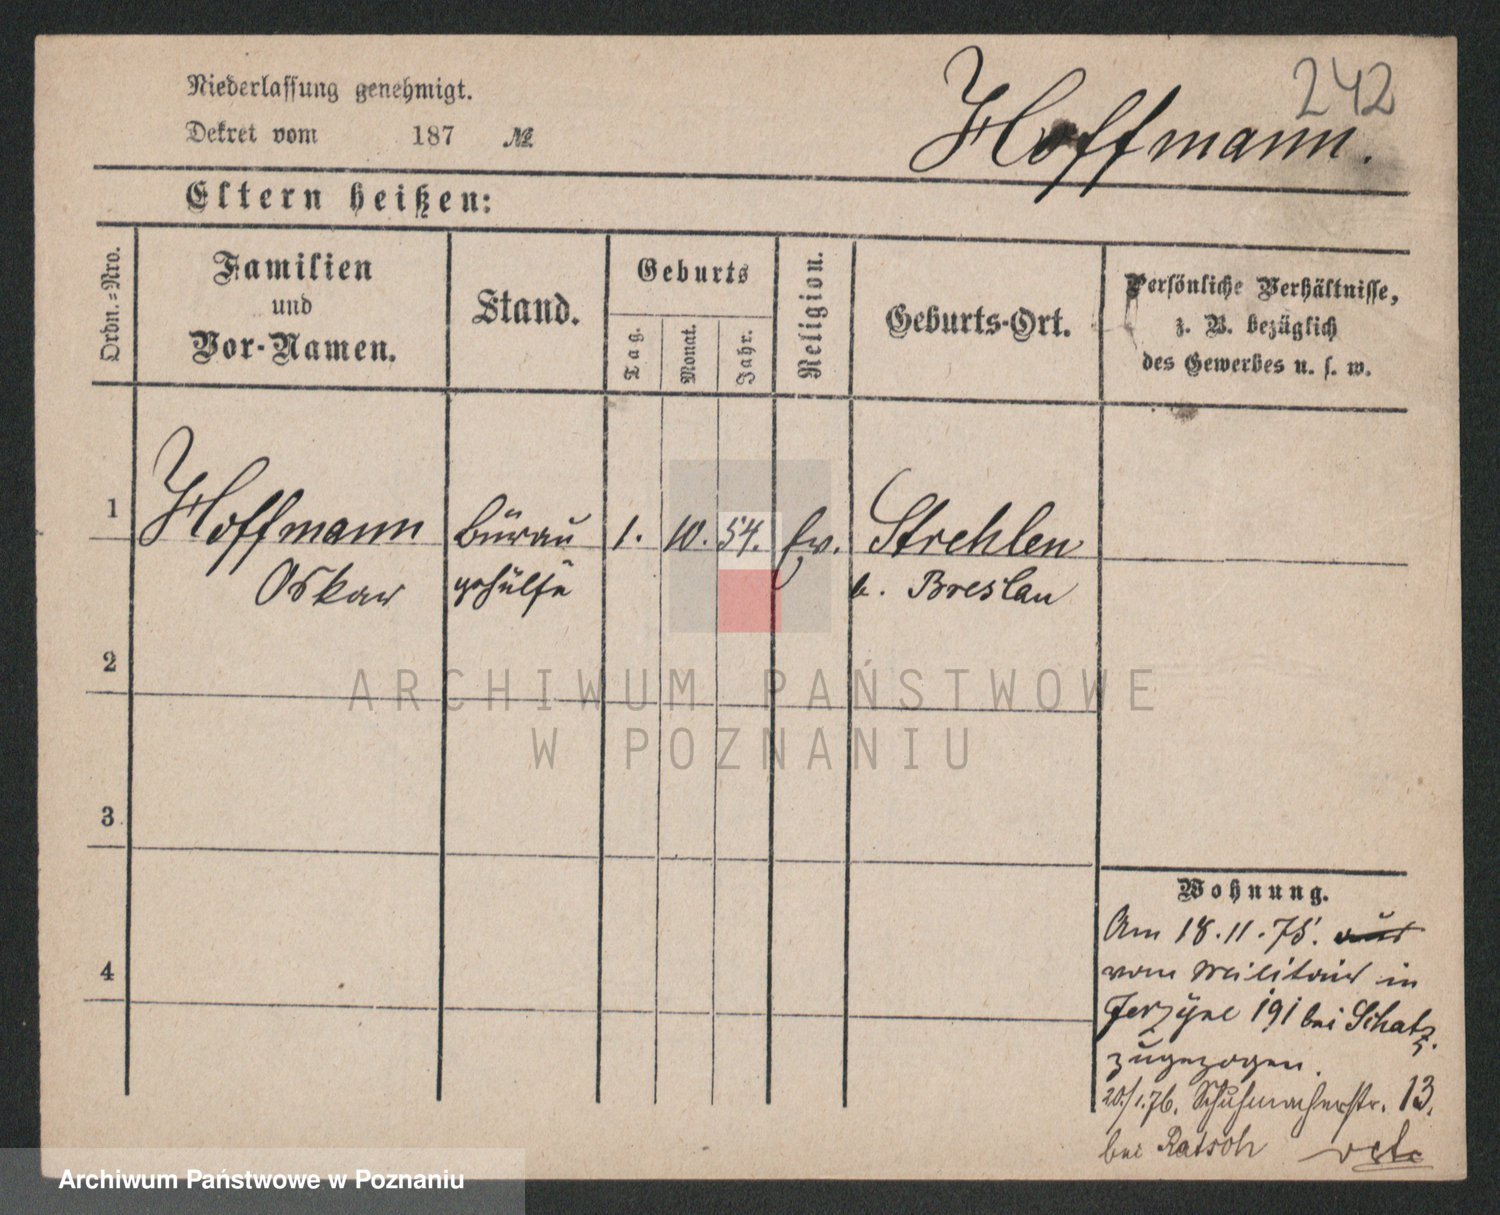 242
Niederlassung genehmigt.
Dekret vom 187 №
Hoffmann.
Eltern heißen:
Ordn.=Nro.
Familien
und
Vor-Namen.
Stand.
Geburts
Tag.
Monat.
Jahr.
Religion.
Geburts-Ort.
Persönliche Verhältnisse,
z. B. bezüglich
des Gewerbes u. s. w.
1
Hoffmann Büreau 1. 10. 54. Ev. Strehlen
Oskar gehülfe b. Breslau
2
ARCHIWUM PAŃSTWOWE
W POZNANIU
3
Wohnung.
Am 18.11.75. aus
vom Militair in
Jerzyce 191 bei Schatz
zugezogen.
20./1.76. Schuhmacherstr. 13.
bei Ratsch
4
Archiwum Państwowe w Poznaniu